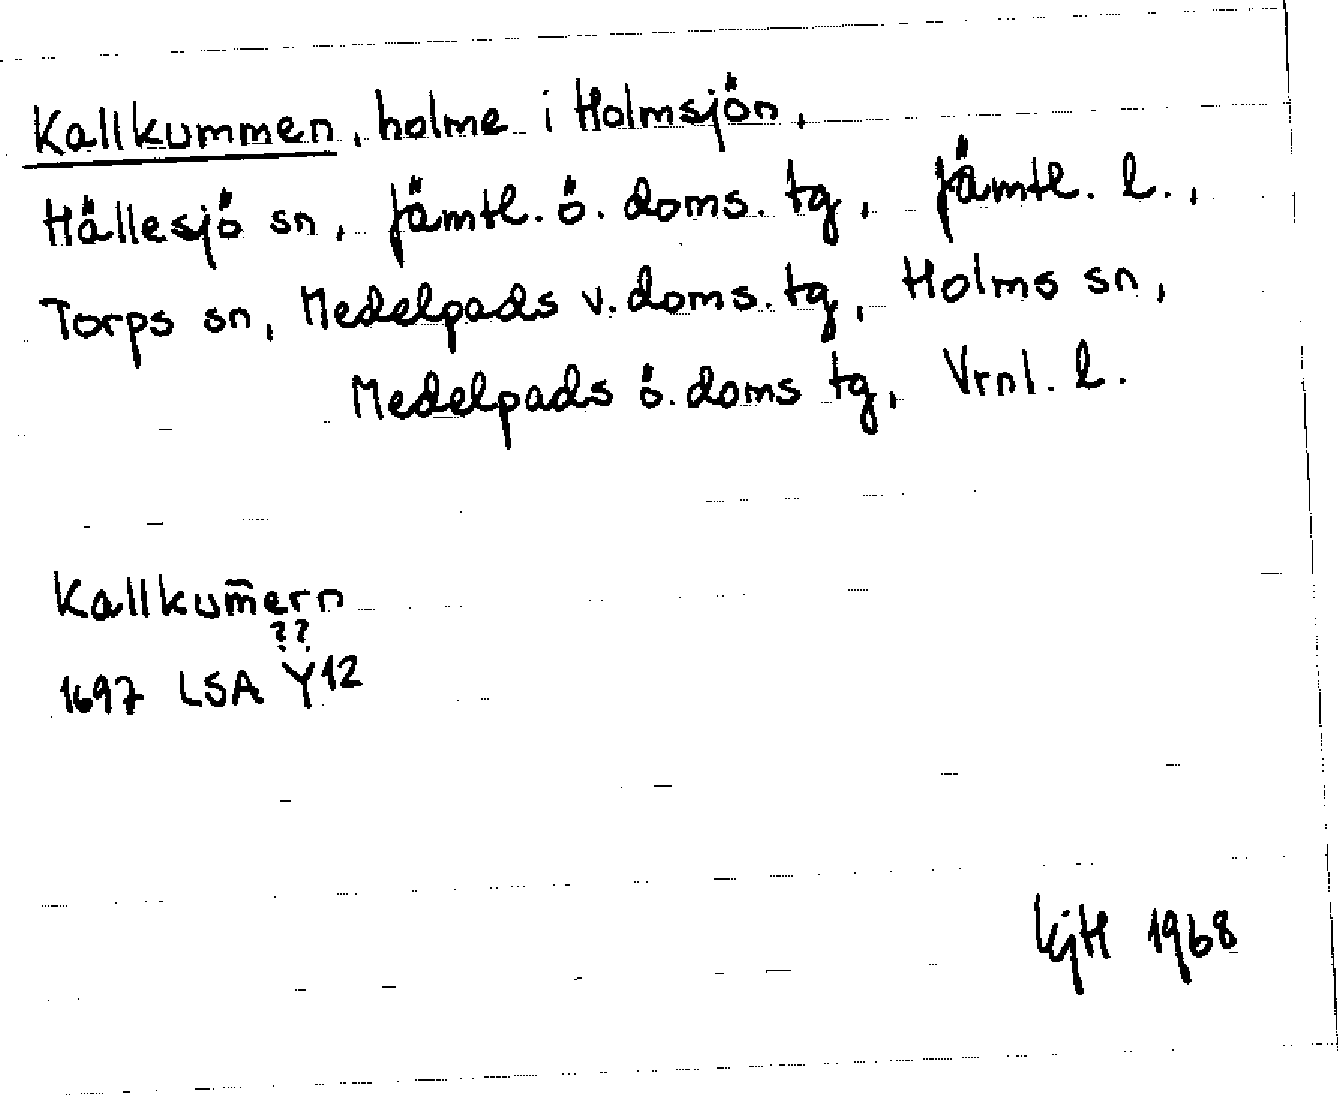 Kallkummen, holme i Holmsjön,
Hällesjö sn, Jämtl. ö. doms. tg, Jämtl. l.,
Torps sn, Medelpads v. doms. tg, Holms sn,
Medelpads ö. doms tg, Vrnl. l.
Kallkum̅ern
??
1697 LSA Y12
KjH 1968